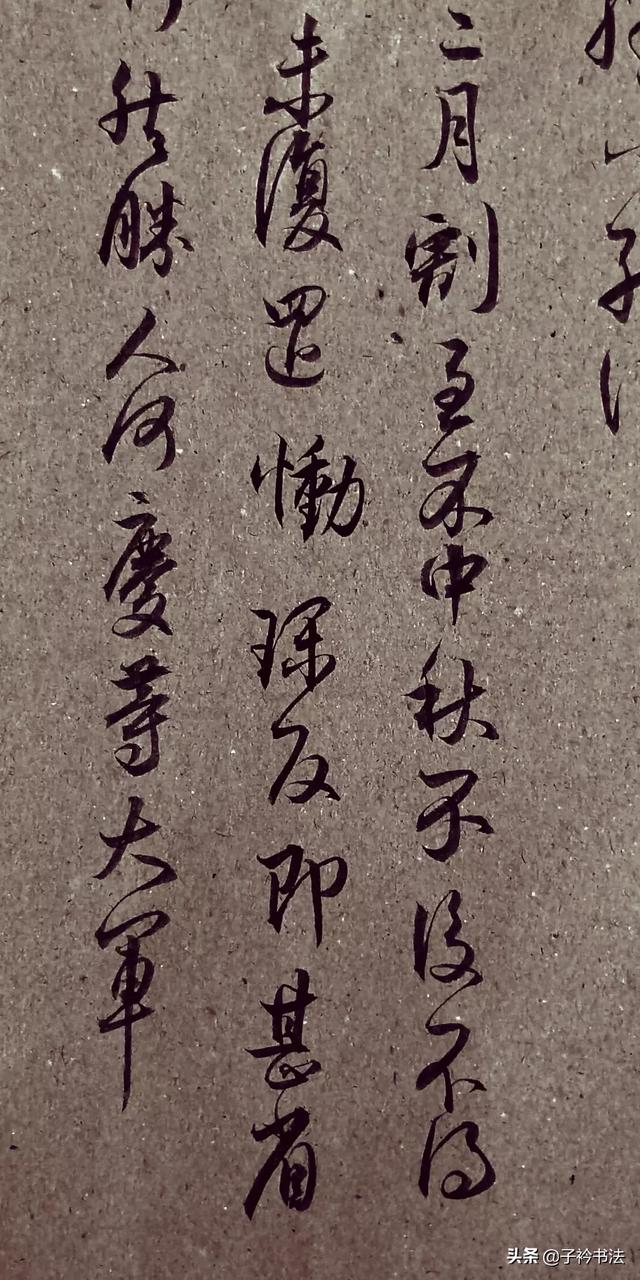 子
二月割至不中秋不復不得
未復還慟反即甚省
然勝人何慶等大軍
头条 @子衿书法